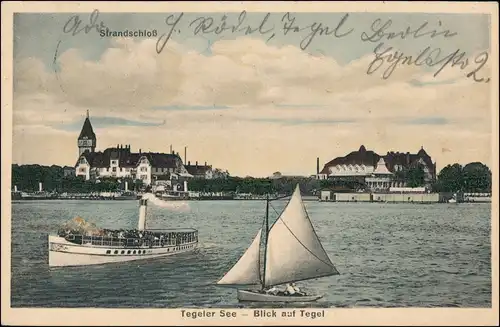 Strandschloß
H. Rödel, Tegel Berlin
Tegeler See – Blick auf Tegel